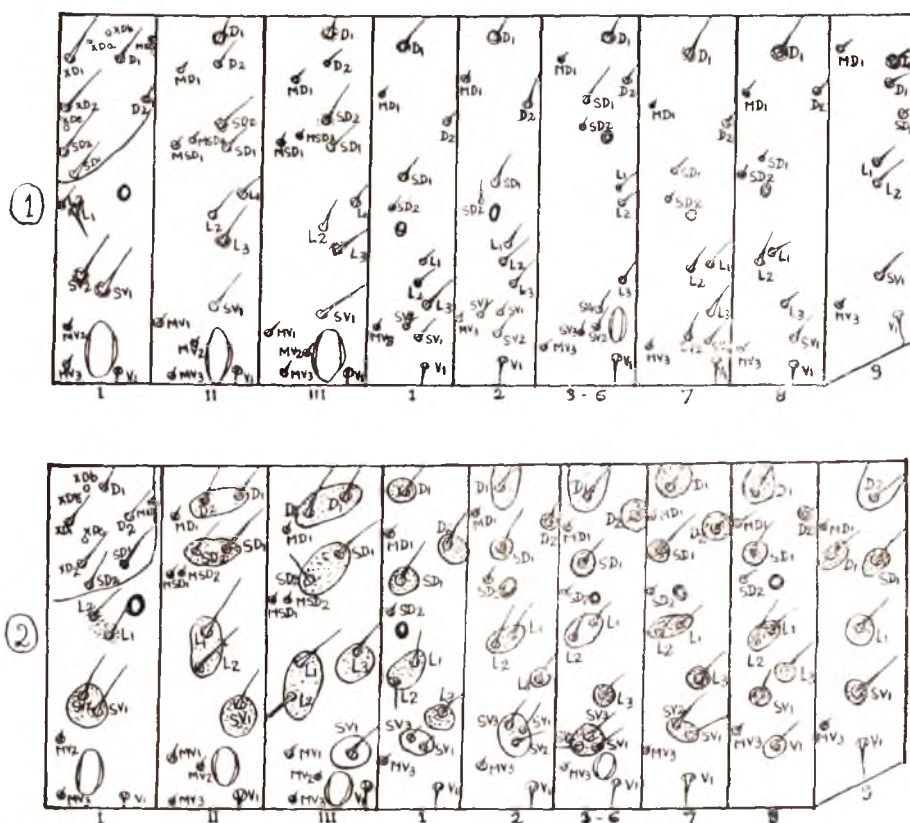 1
XDb
XDa
XD1
D1
XD2
D2
SD2
SD1
L1
SV2
SV1
MV2
MV3
V1
I
D1
MD1
D2
SD2
MSD2
MSD1
SD1
L1
L2
L3
SV1
MV1
MV2
MV3
V1
II
D1
D2
MD1
SD2
MSD2
MSD1
SD1
L1
L2
L3
SV1
MV1
MV2
MV3
V1
III
D1
MD1
D2
SD1
SD2
L1
L2
L3
SV1
MV3
V1
1
D1
MD1
D2
SD1
SD2
L1
L2
L3
SV1
MV3
SV2
V1
2
D1
MD1
D2
SD1
SD2
L1
L2
L3
SV3
SV2
MV3
V1
3-6
D1
MD1
D2
SD1
SD2
L1
L2
L3
SV2
MV3
V1
7
D1
MD1
D2
SD1
SD2
L1
L2
L3
SV1
MV3
V1
8
MD1
D2
D1
SD1
L1
L2
SV1
MV3
V1
9
2
XDb
D1
D2
XD2
SD2
L2
L1
SV1
MV2
MV3
V1
I
D2
D1
MD1
SD2
SD1
MSD2
MSD1
L1
L2
SV1
MV1
MV2
MV3
V1
II
D2
D1
MD1
SD1
SD2
MSD2
MSD1
L1
L3
L2
SV1
MV1
MV2
MV3
V1
III
D1
MD1
D2
SD1
SD2
L1
L2
SV3
SV1
MV3
1
D1
MD1
D2
SD1
SD2
L1
L2
SV3
SV1
SV2
MV3
V1
2
D1
MD1
D2
SD1
L1
L2
L3
SV3
SV1
MV3
V1
3-6
D1
MD1
D2
SD1
SD2
L1
L2
L3
SV2
SV1
MV3
V1
7
D1
MD1
D2
SD1
SD2
L1
L2
L3
SV1
MV3
V1
8
D2
MD1
D1
SD1
L1
SV1
MV3
V1
9